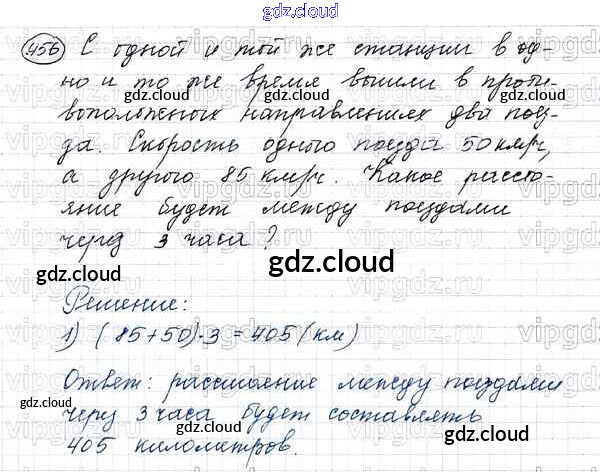 gdz.cloud
456 С одной и той же станции в од-
но и то же время вышли в проти-
gdz.cloud gdz.cloud
воположных направлениях два поез-
да. Скорость одного поезда 50 км/ч,
а другого 85 км/ч. Какое рассто-
яние будет между поездами
через 3 часа?
gdz.cloud gdz.cloud
gdz.cloud
Решение:
1) (85+50)·3=405 (км)
gdz.cloud
Ответ: расстояние между поездами
через 3 часа будет составлять
gdz.cloud gdz.cloud
405 километров.
gdz.cloud